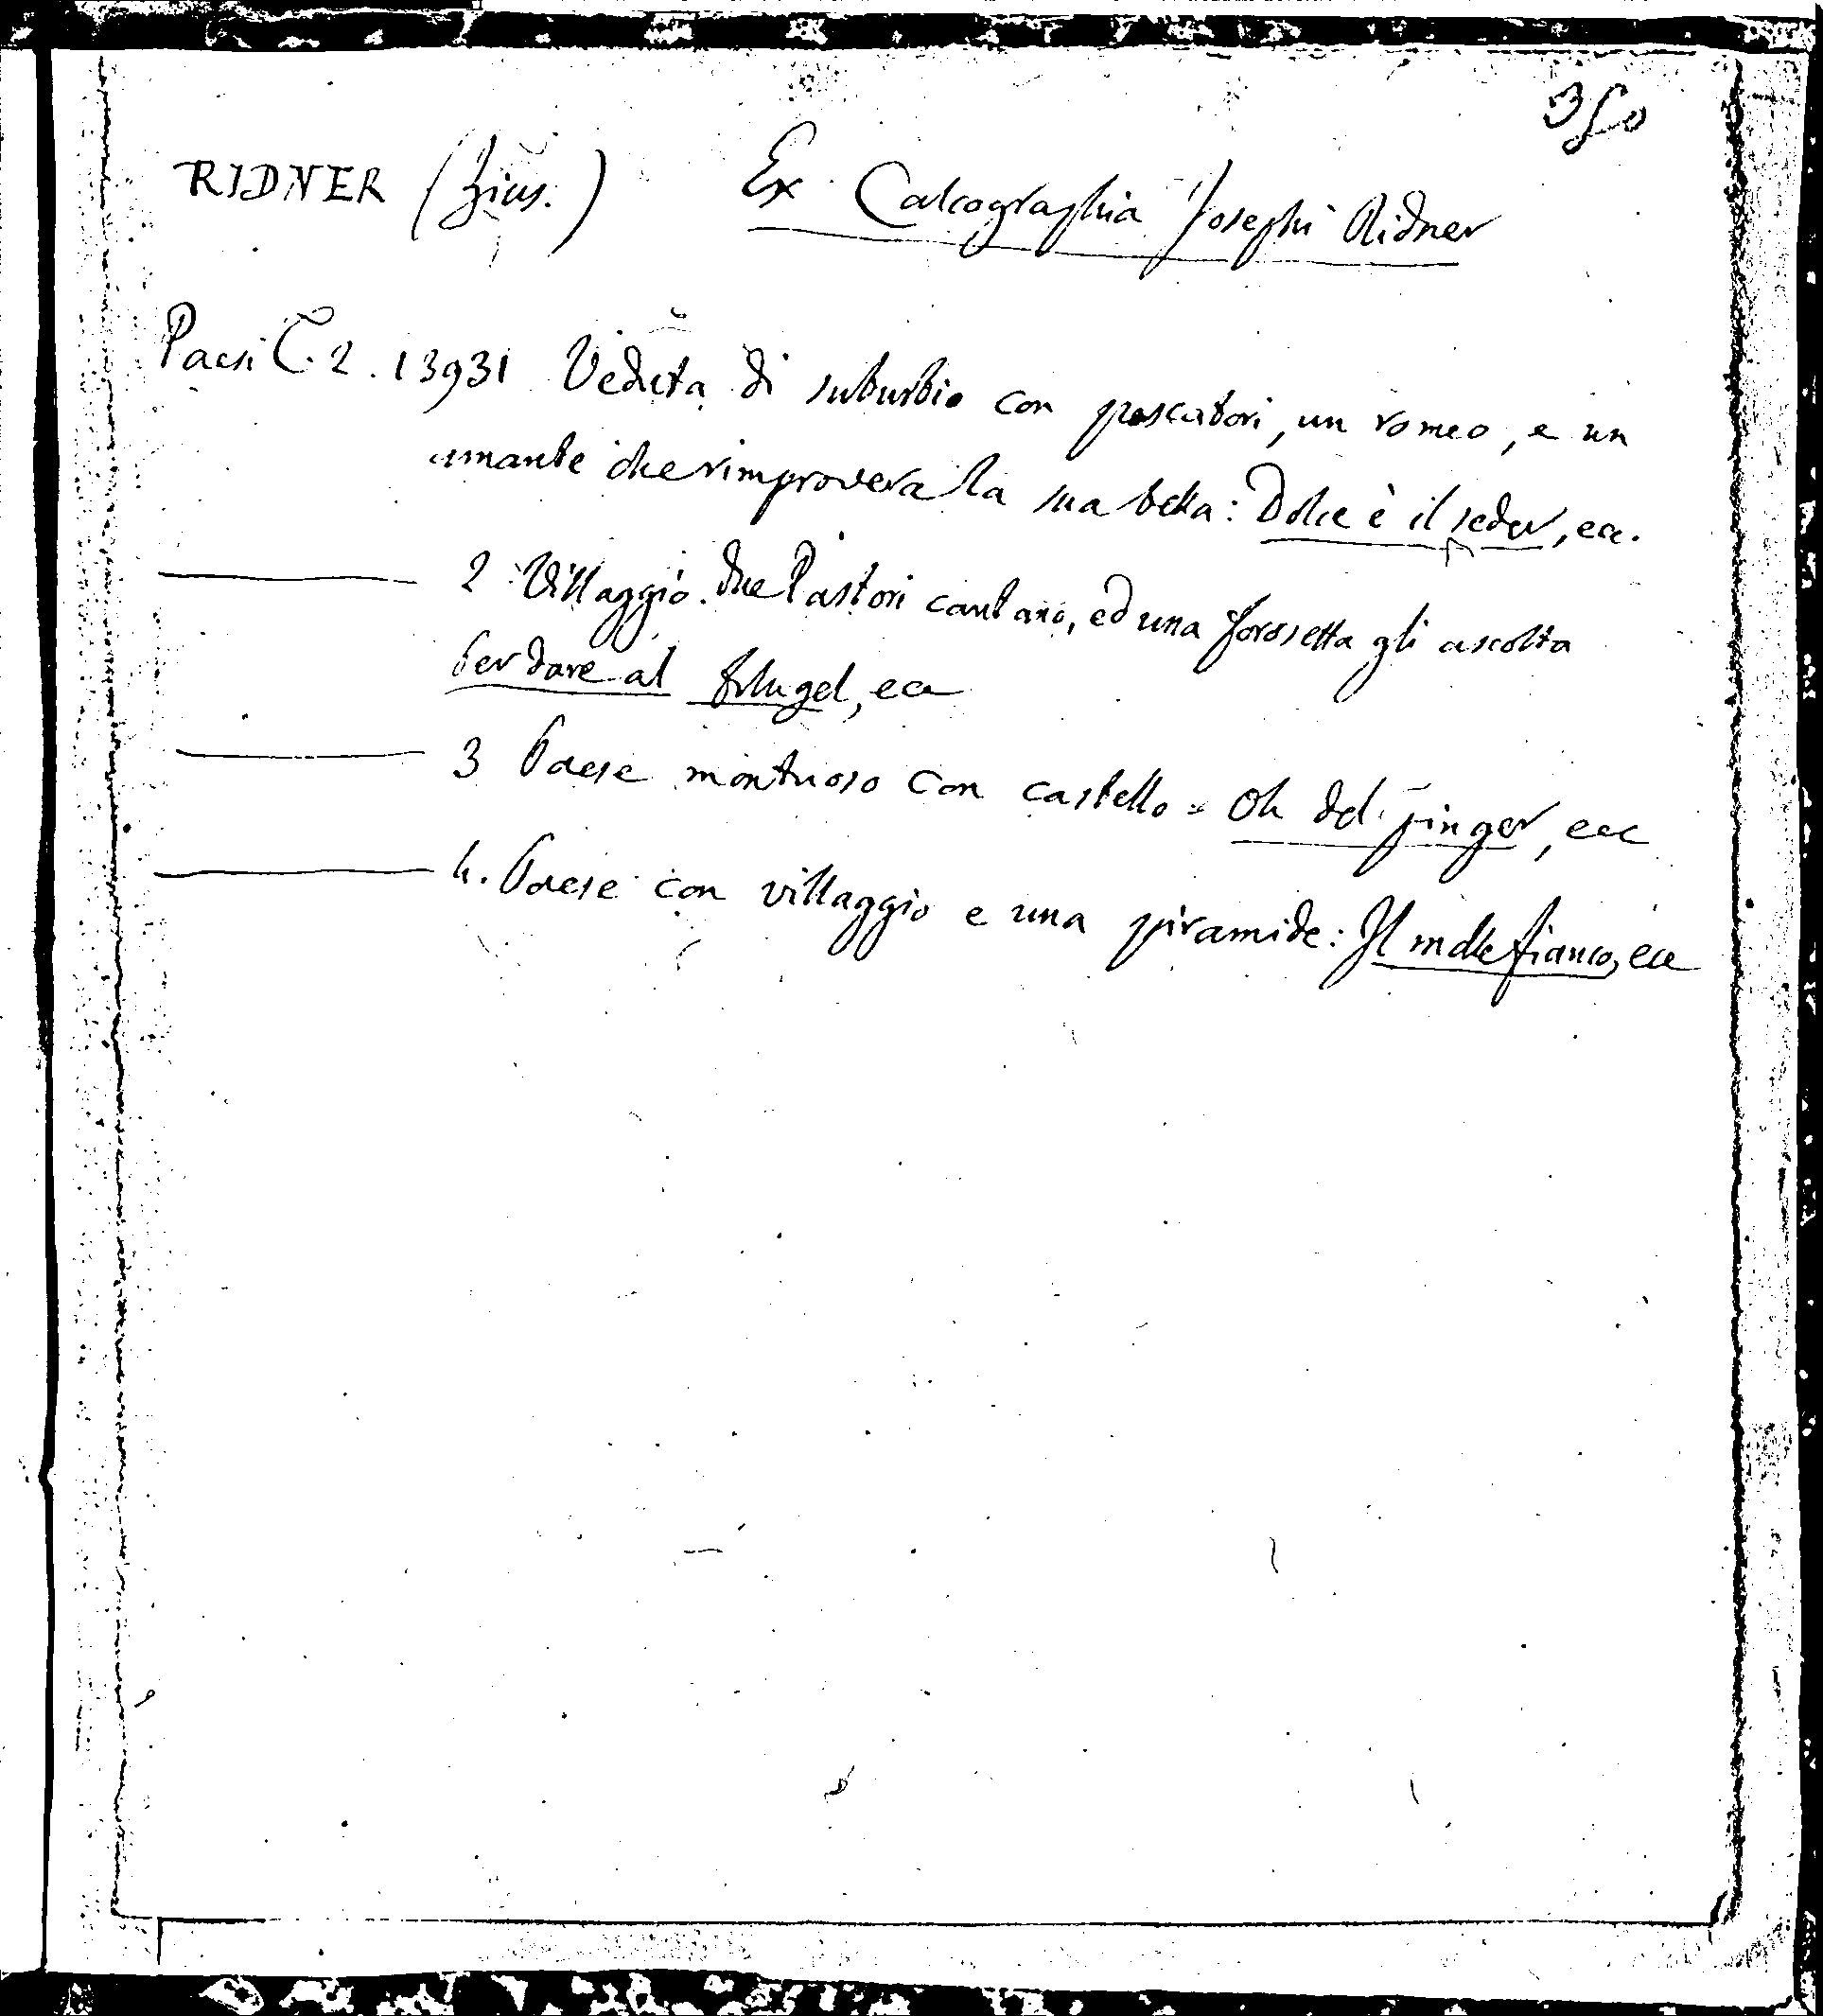 350
RIDNER (Gius.) Ex Calcographia Josephi Ridner
Paesi C. 2. 13931 Veduta di suburbio con pescatori, un romeo, e un
amante che rimprovera la sua bella: Dolce è il seder, ecc.
2 Villaggio. due Pastori cantano, ed una forosetta gli ascolta
Per dare al ecc
3 Paese montuoso con castello = Oh del pinger, ecc
4. Paese con villaggio e una piramide: Il molle fianco, ecc